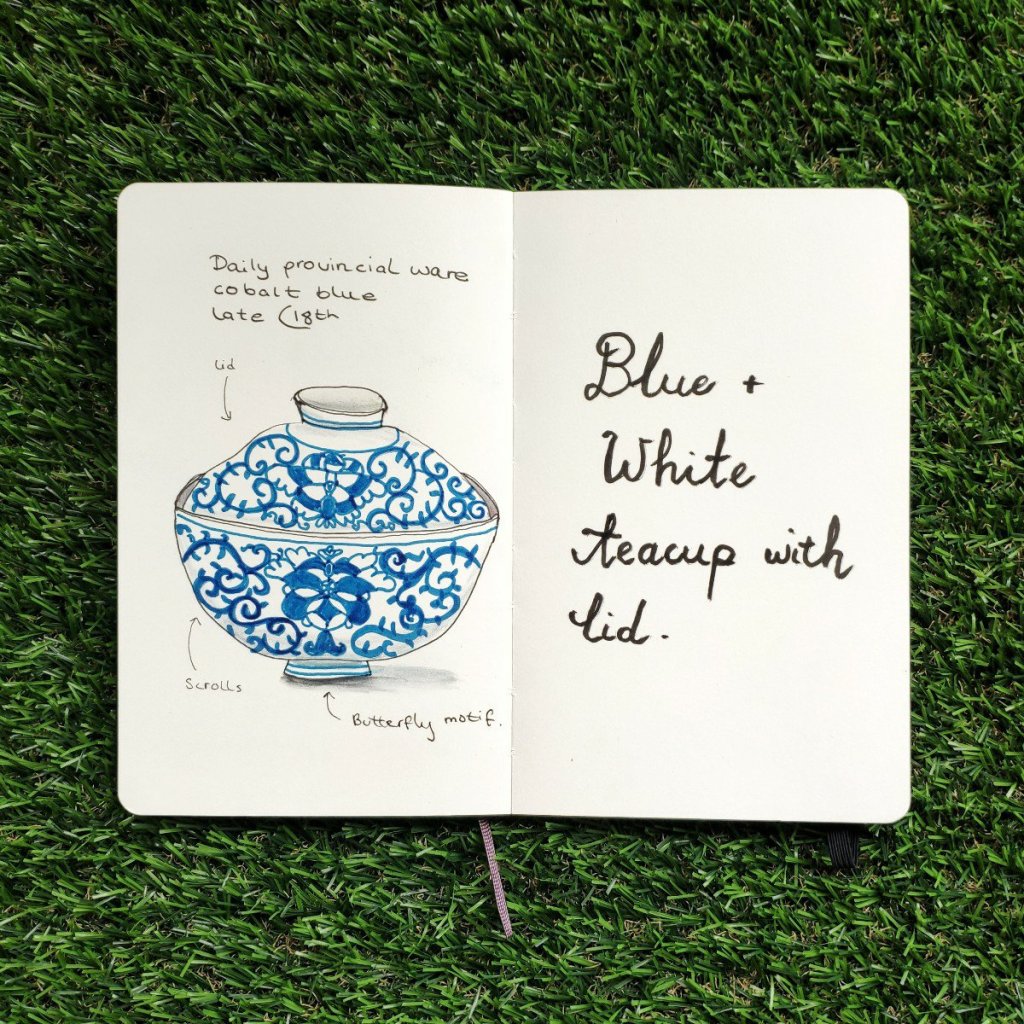 Daily provincial ware
cobalt blue
late C18th
lid
Scrolls
Butterfly motif.
Blue +
White
teacup with
lid.